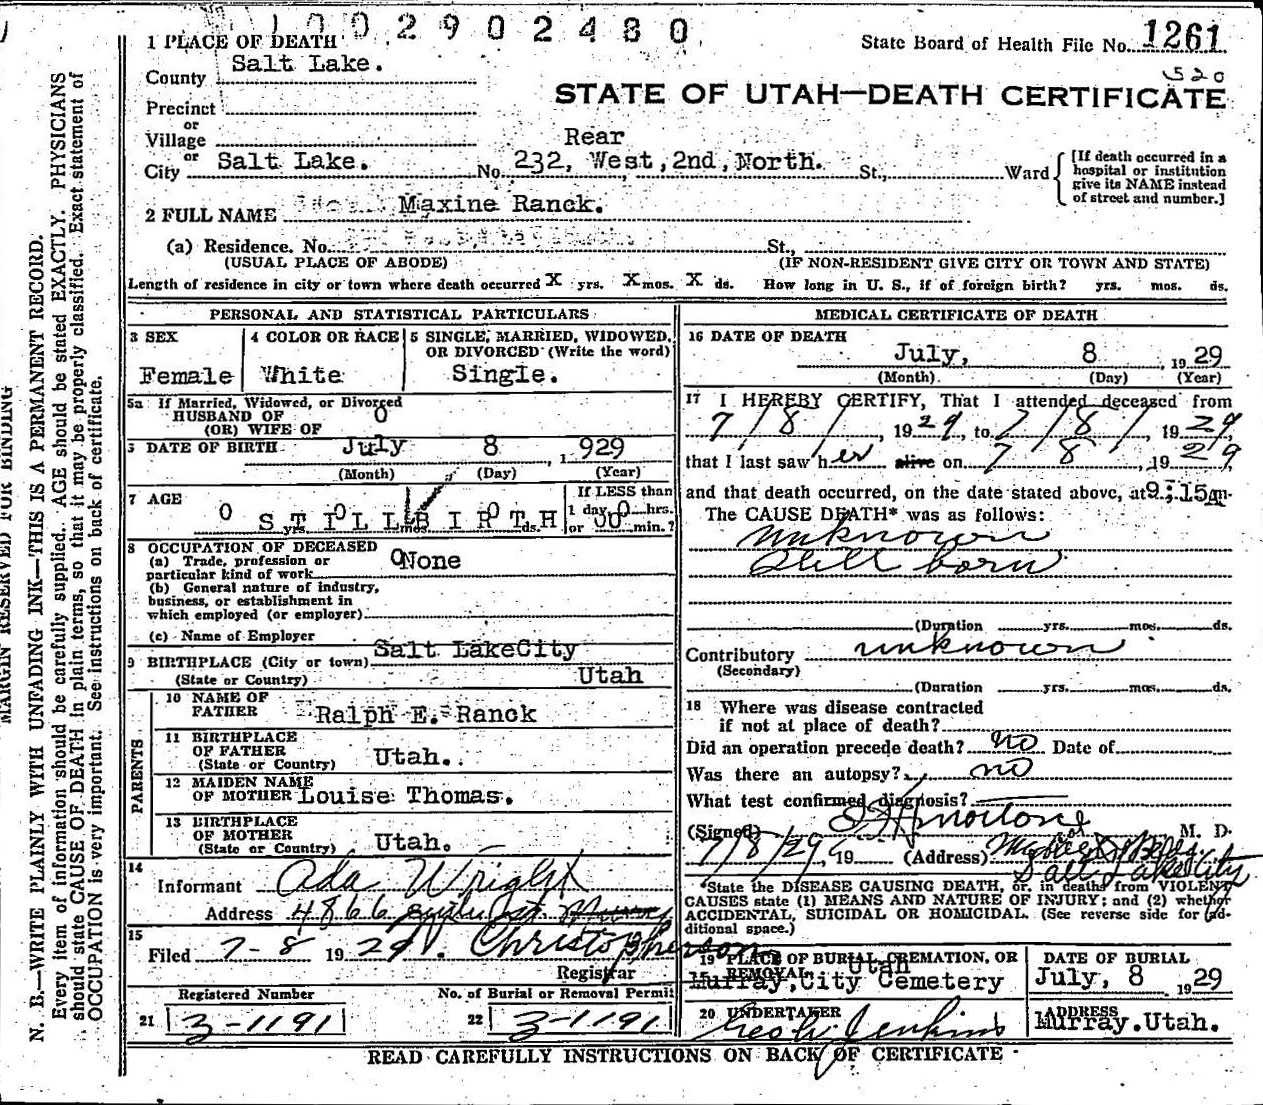 1002902480
1 PLACE OF DEATH
State Board of Health File No. 1261
County Salt Lake.
520
STATE OF UTAH—DEATH CERTIFICATE
Precinct
or
Village
Rear
or
City Salt Lake. No. 232, West, 2nd, North. St., Ward
[If death occurred in a
hospital or institution
give its NAME instead
of street and number.]
2 FULL NAME Maxine Ranck.
(a) Residence. No. St.,
(USUAL PLACE OF ABODE) (IF NON-RESIDENT GIVE CITY OR TOWN AND STATE)
Length of residence in city or town where death occurred X yrs. X mos. X ds. How long in U. S., if of foreign birth? yrs. mos. ds.
PERSONAL AND STATISTICAL PARTICULARS
3 SEX
Female
4 COLOR OR RACE
White
5 SINGLE, MARRIED, WIDOWED,
OR DIVORCED (Write the word)
Single.
5a If Married, Widowed, or Divorced
HUSBAND OF 0
(OR) WIFE OF
6 DATE OF BIRTH July 8, 1929
(Month) (Day) (Year)
7 AGE
0 yrs. 0 mos. 0 ds.
STILLBIRTH
If LESS than
1 day, 0 hrs.
or 00 min.?
8 OCCUPATION OF DECEASED
(a) Trade, profession or
particular kind of work 0None
(b) General nature of industry,
business, or establishment in
which employed (or employer)
(c) Name of Employer
Salt LakeCity
9 BIRTHPLACE (City or town)
(State or Country) Utah
PARENTS
10 NAME OF
FATHER Ralph E. Ranck
11 BIRTHPLACE
OF FATHER
(State or Country) Utah.
12 MAIDEN NAME
OF MOTHER Louise Thomas.
13 BIRTHPLACE
OF MOTHER
(State or Country) Utah.
14
Informant Ada Wright
Address 4866 St. Murray
15
Filed 7-8 1929 Christopherson
Registrar
Registered Number
21 3-1191
No. of Burial or Removal Permit
22 3-1191
MEDICAL CERTIFICATE OF DEATH
16 DATE OF DEATH
July, 8, 1929
(Month) (Day) (Year)
17 I HEREBY CERTIFY, That I attended deceased from
7/8/, 1929, to 7/8/, 1929
that I last saw her alive on 7 8, 1929
and that death occurred, on the date stated above, at 9:15 m.
The CAUSE DEATH* was as follows:
unknown
Still born
(Duration yrs. mos. ds.
Contributory unknown
(Secondary)
(Duration yrs. mos. ds.
18 Where was disease contracted
if not at place of death?
Did an operation precede death? no Date of
Was there an autopsy? no
What test confirmed diagnosis?
(Signed) M. D.
7/8/29, 19 (Address)
Salt Lake City
*State the DISEASE CAUSING DEATH, or, in deaths from VIOLENT
CAUSES state (1) MEANS AND NATURE OF INJURY; and (2) whether
ACCIDENTAL, SUICIDAL OR HOMICIDAL. (See reverse side for additional space.)
19 PLACE OF BURIAL, CREMATION, OR
REMOVAL Utah
Murray, City Cemetery
DATE OF BURIAL
July, 8 1929
20 UNDERTAKER
Jenkins
ADDRESS
Murray. Utah.
READ CAREFULLY INSTRUCTIONS ON BACK OF CERTIFICATE
MARGIN RESERVED FOR BINDING
N. B.—WRITE PLAINLY WITH UNFADING INK—THIS IS A PERMANENT RECORD.
Every item of information should be carefully supplied. AGE should be stated EXACTLY. PHYSICIANS
should state CAUSE OF DEATH in plain terms, so that it may be properly classified. Exact statement of
OCCUPATION is very important. See instructions on back of certificate.